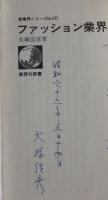 産業界シリーズNo.521
ファッション業界
大塚佳彦著
教育社新書
昭和六十二年五月十四日
大塚佳彦